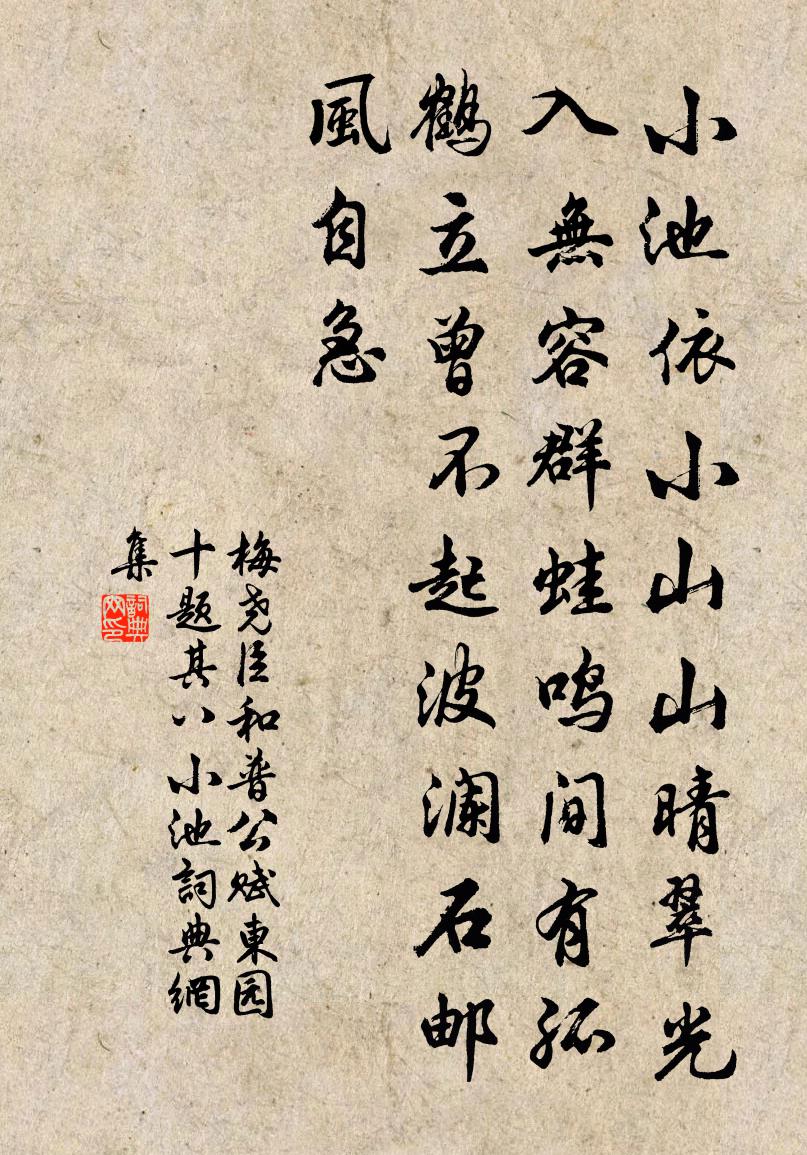 小池依小山山晴翠光
入無容群蛙鸣间有孤
鶴立曾不起波澜石邮
風自急
梅尧臣和普公赋東园
十题其八小池詞典網
集
詞典网印